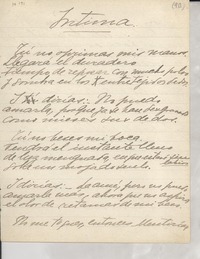 Íntima
Tú no oprimas mis manos.
Llegará el duradero
tiempo de reposar con mucho polvo
y sombra en los entretejidos dedos.
Y dirías: - No puedo
amarla, porque ya se desgranaron
como mieses sus dedos.
Tú no beses mi boca.
Vendrá el instante lleno
de luz menguada, en que estaré sin labios
sobre un mojado suelo.
Y dirías: - La amé, pero no puedo
amarla más, ahora que no aspira
el olor de retamas de mi beso.